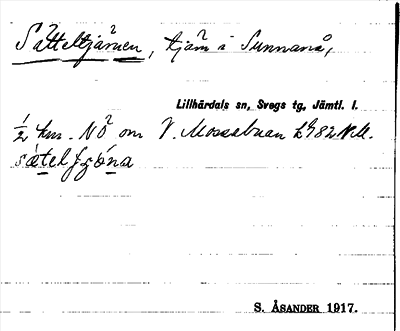 Sätteltjärnen, tjärn i Sunnanå,
Lillhärdals sn, Svegs tg, Jämtl. l.
½ km. NO om V. Mossbuan
sätel
S. ÅSANDER 1917.